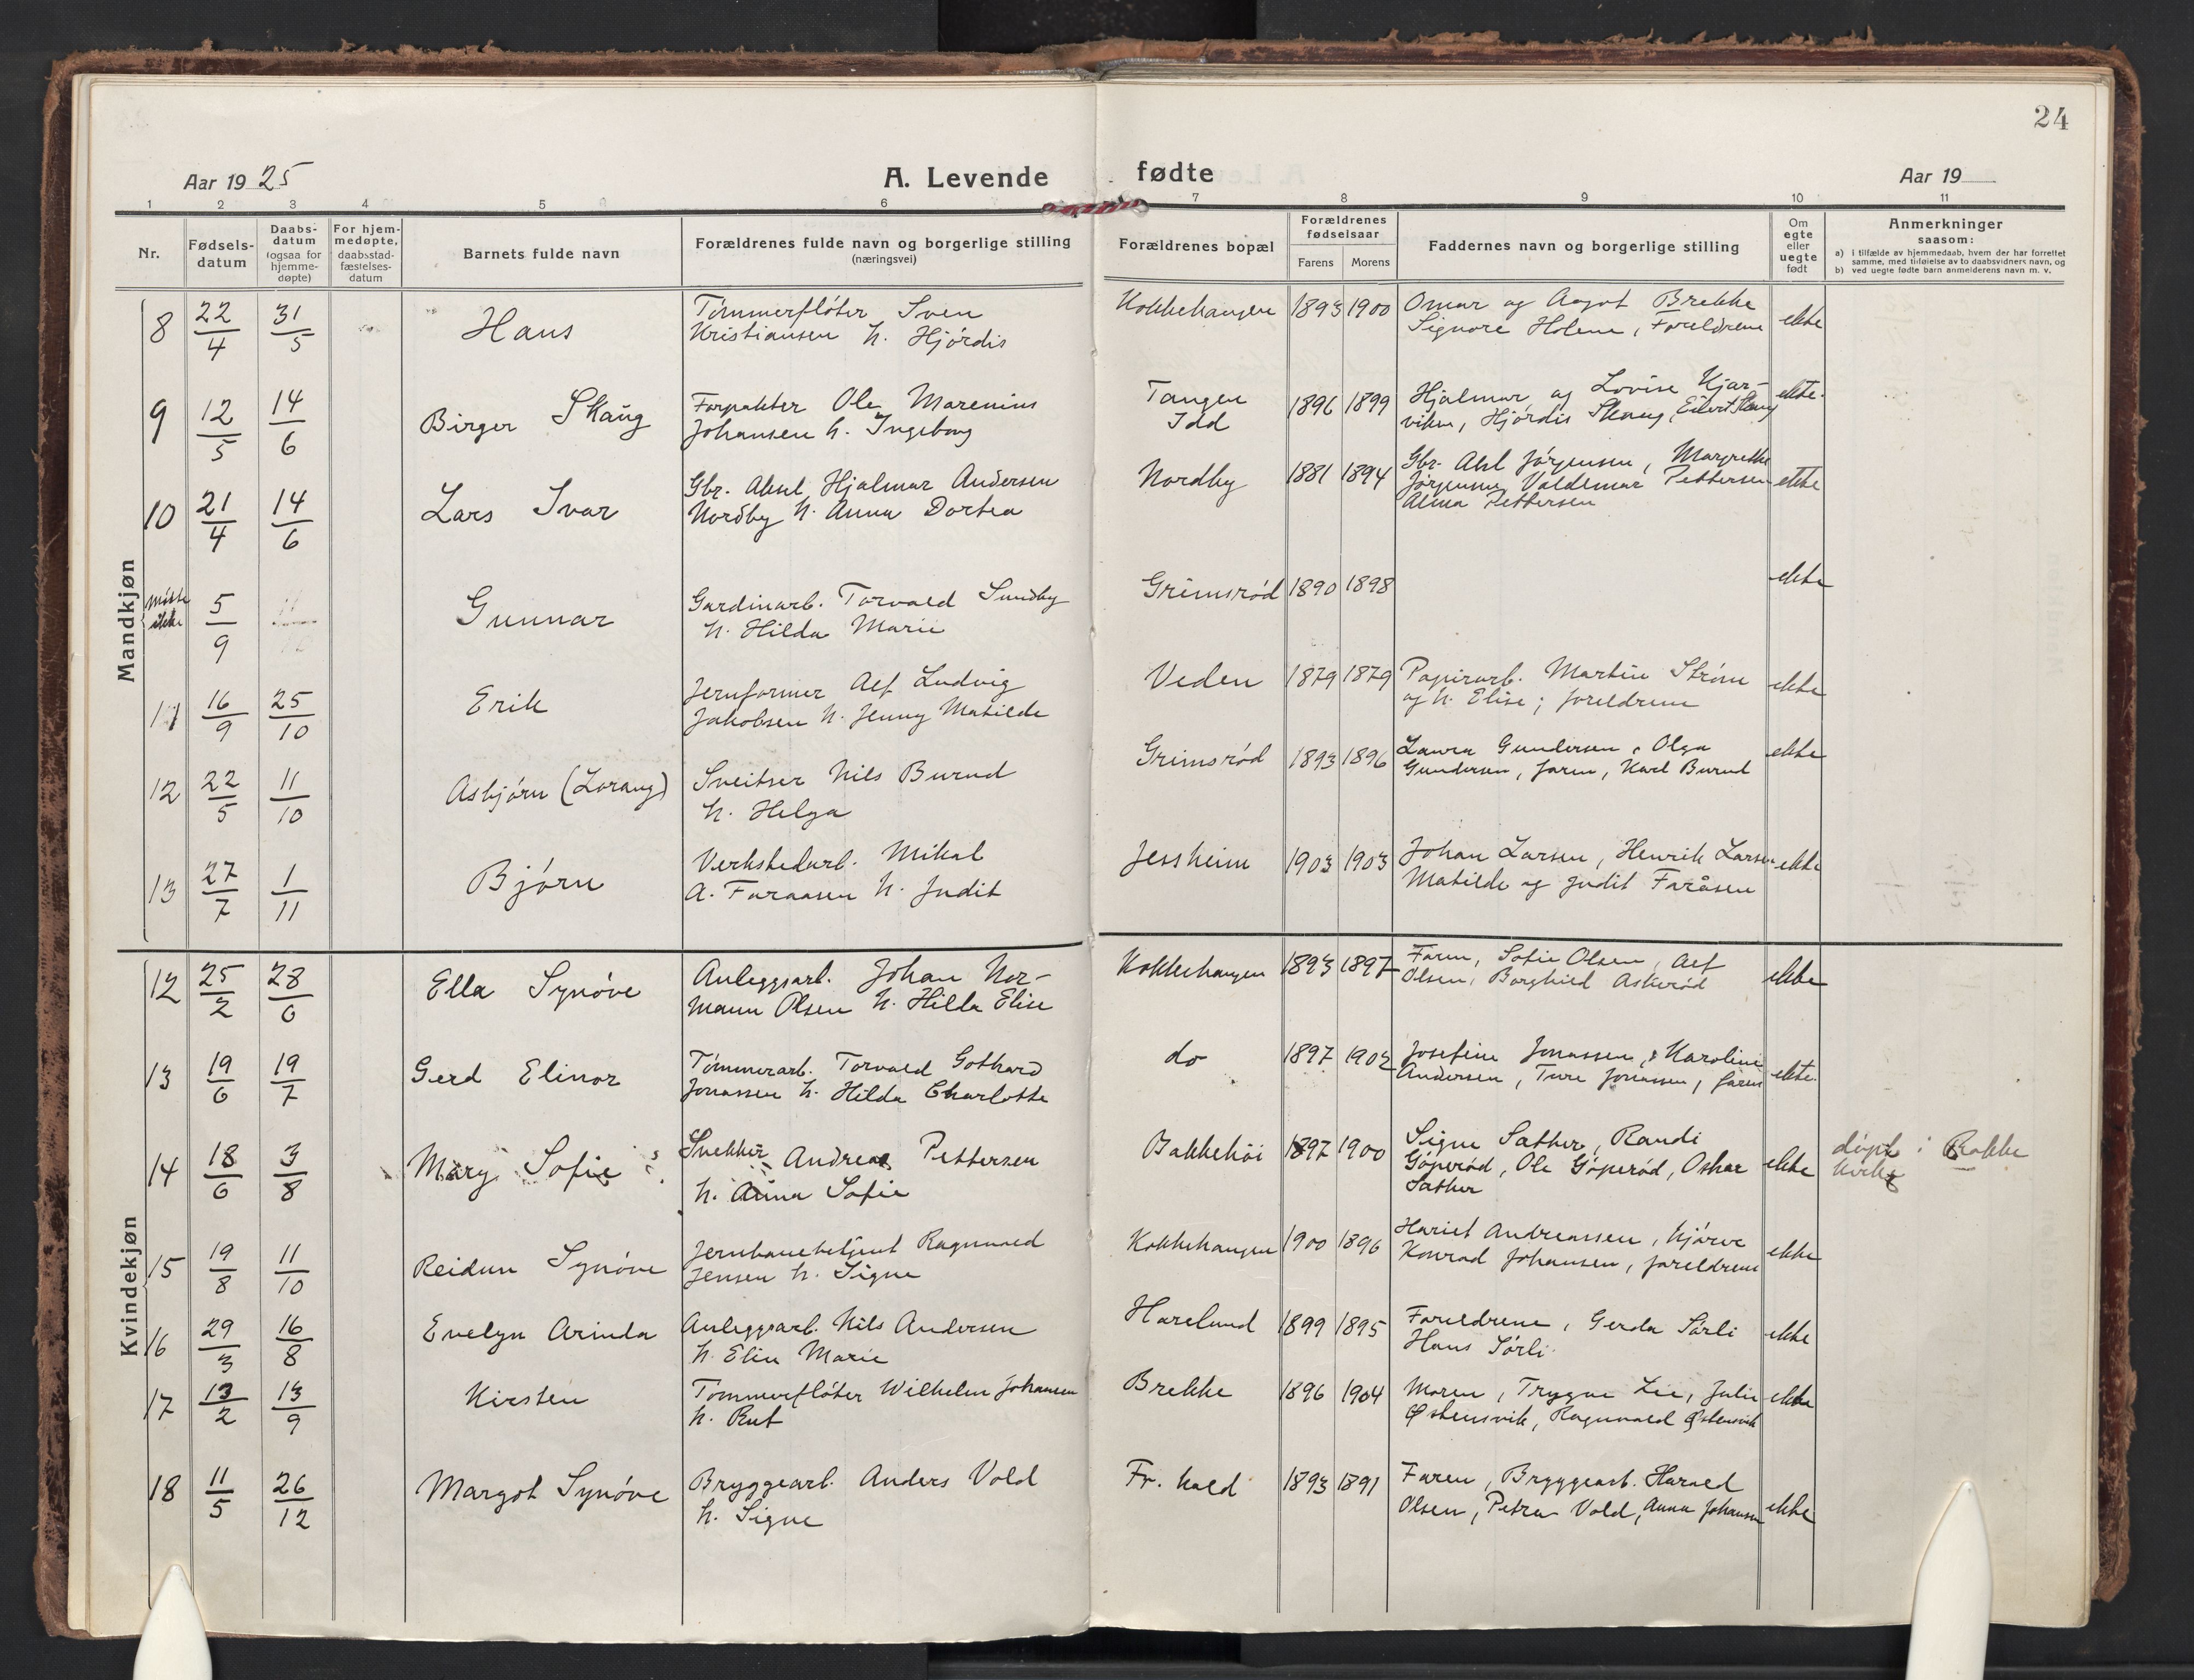 24
Aar 1925
A. Levende fødte
Aar 19
1 2 3 4 5 6 7 8 9 10 11
Nr.
Fødsels-
datum
Daabs-
datum
(ogsaa for
hjemme-
døpte)
For hjem-
medøpte,
daabsstad-
fæstelses-
datum
Barnets fulde navn
Forældrenes fulde navn og borgerlige stilling
(næringsvei)
Forældrenes bopæl
Forældrenes
fødselsaar
Farens Morens
Faddernes navn og borgerlige stilling
Om
egte
eller
uegte
født
Anmerkninger
saasom:
a) i tilfælde av hjemmedaab, hvem der har forrettet
samme, med tilføielse av to daabsvidners navn, og
b) ved uegte fødte barn anmelderens navn m. v.
Mandkjøn
8 22/4 31/5 Hans
Tømmerfløter Sven
Kristiansen h. Hjørdis
Kokkehaugen 1893 1900
Omar og Aagot Brekke
Signore Holene, Foreldrene
ekte
9 12/5 14/6 Birger Skaug
Forpakter Ole Marenius
Johansen h. Ingeborg
Tangen
Idd
1896 1899
Hjalmar og Lovise Kjær-
viken, Hjørdis Skaug, Eilert Skaug
ekte
10 21/4 14/6 Lars Ivar
Gbr. Aksel Hjalmar Andersen
Nordby h. Anna Dortea
Nordby 1881 1894
Gbr. Aksel Jørgensen, Margrethe
Jørgensen, Valdemar Pettersen
Alma Pettersen
ekte
5/9 Gunnar
Gardinarb. Torvald Sundby
h. Hilda Marie
Grimsrød 1890 1898
ekte
11 16/9 25/10 Erik
Jernformer Alf Ludvig
Jakobsen h. Jenny Matilde
Veden 1879 1879
Papirarb. Martin Strøm
og h. Elise; foreldrene
ekte
12 22/5 11/10 Asbjørn (Lorang)
Sveitser Nils Burud
h. Helga
Grimsrød 1893 1896
Laura Gundersen, Olga
Gundersen, faren, Karl Burud
ekte
13 27/7 1/11 Bjørn
Verkstedarb. Mikal
A. Faraasen h. Judit
Jessheim 1903 1903
Johan Larsen, Henrik Larsen
Matilde og Judit Faråsen
ekte
Kvindekjøn
12 25/2 28/6 Ella Synøve
Anleggsarb. Johan Nor-
mann Olsen h. Hilda Elise
Kokkehaugen 1893 1897
Faren, Sofie Olsen, Alf
Olsen, Borghild Askerød
ekte
13 19/6 19/7 Gerd Elinor
Tømmerarb. Torvald Gothard
Jonassen h. Hilda Charlotte
do 1897 1902
Josefine Jonassen, Karoline
Andersen, Ture Jonassen, faren
ekte
14 18/6 3/8 Mary Sofie
Snekker Andreas Pettersen
h. Anna Sofie
Bakkehøi 1897 1900
Signe Sæther, Randi
Gøperød, Ole Gøperød, Oskar
Sæther
ekte
døpt i Rokke
kirke
15 19/8 11/10 Reidun Synøve
Jernbanebetjent Ragnvald
Jensen h. Signe
Kokkehaugen 1900 1896
Hariet Andreassen,
Konrad Johansen, foreldrene
ekte
16 29/3 16/8 Evelyn Arinda
Anleggsarb. Nils Andersen
h. Elin Marie
Harelund 1899 1895
Foreldrene, Gerda Sørli
Hans Sørli
ekte
17 13/2 13/9 Kirsten
Tømmerfløter Wilhelm Johansen
h. Rut
Brekke 1896 1904
Moren, Trygve Lie, Julie
Østensvik, Ragnvald Østensvik
ekte
18 11/5 26/12 Margot Synøve
Bryggearb. Anders Vold
h. Signe
Fr. hald 1893 1891
Faren, Bryggearb. Harald
Olsen, Petra Vold, Anna Johansen
ekte